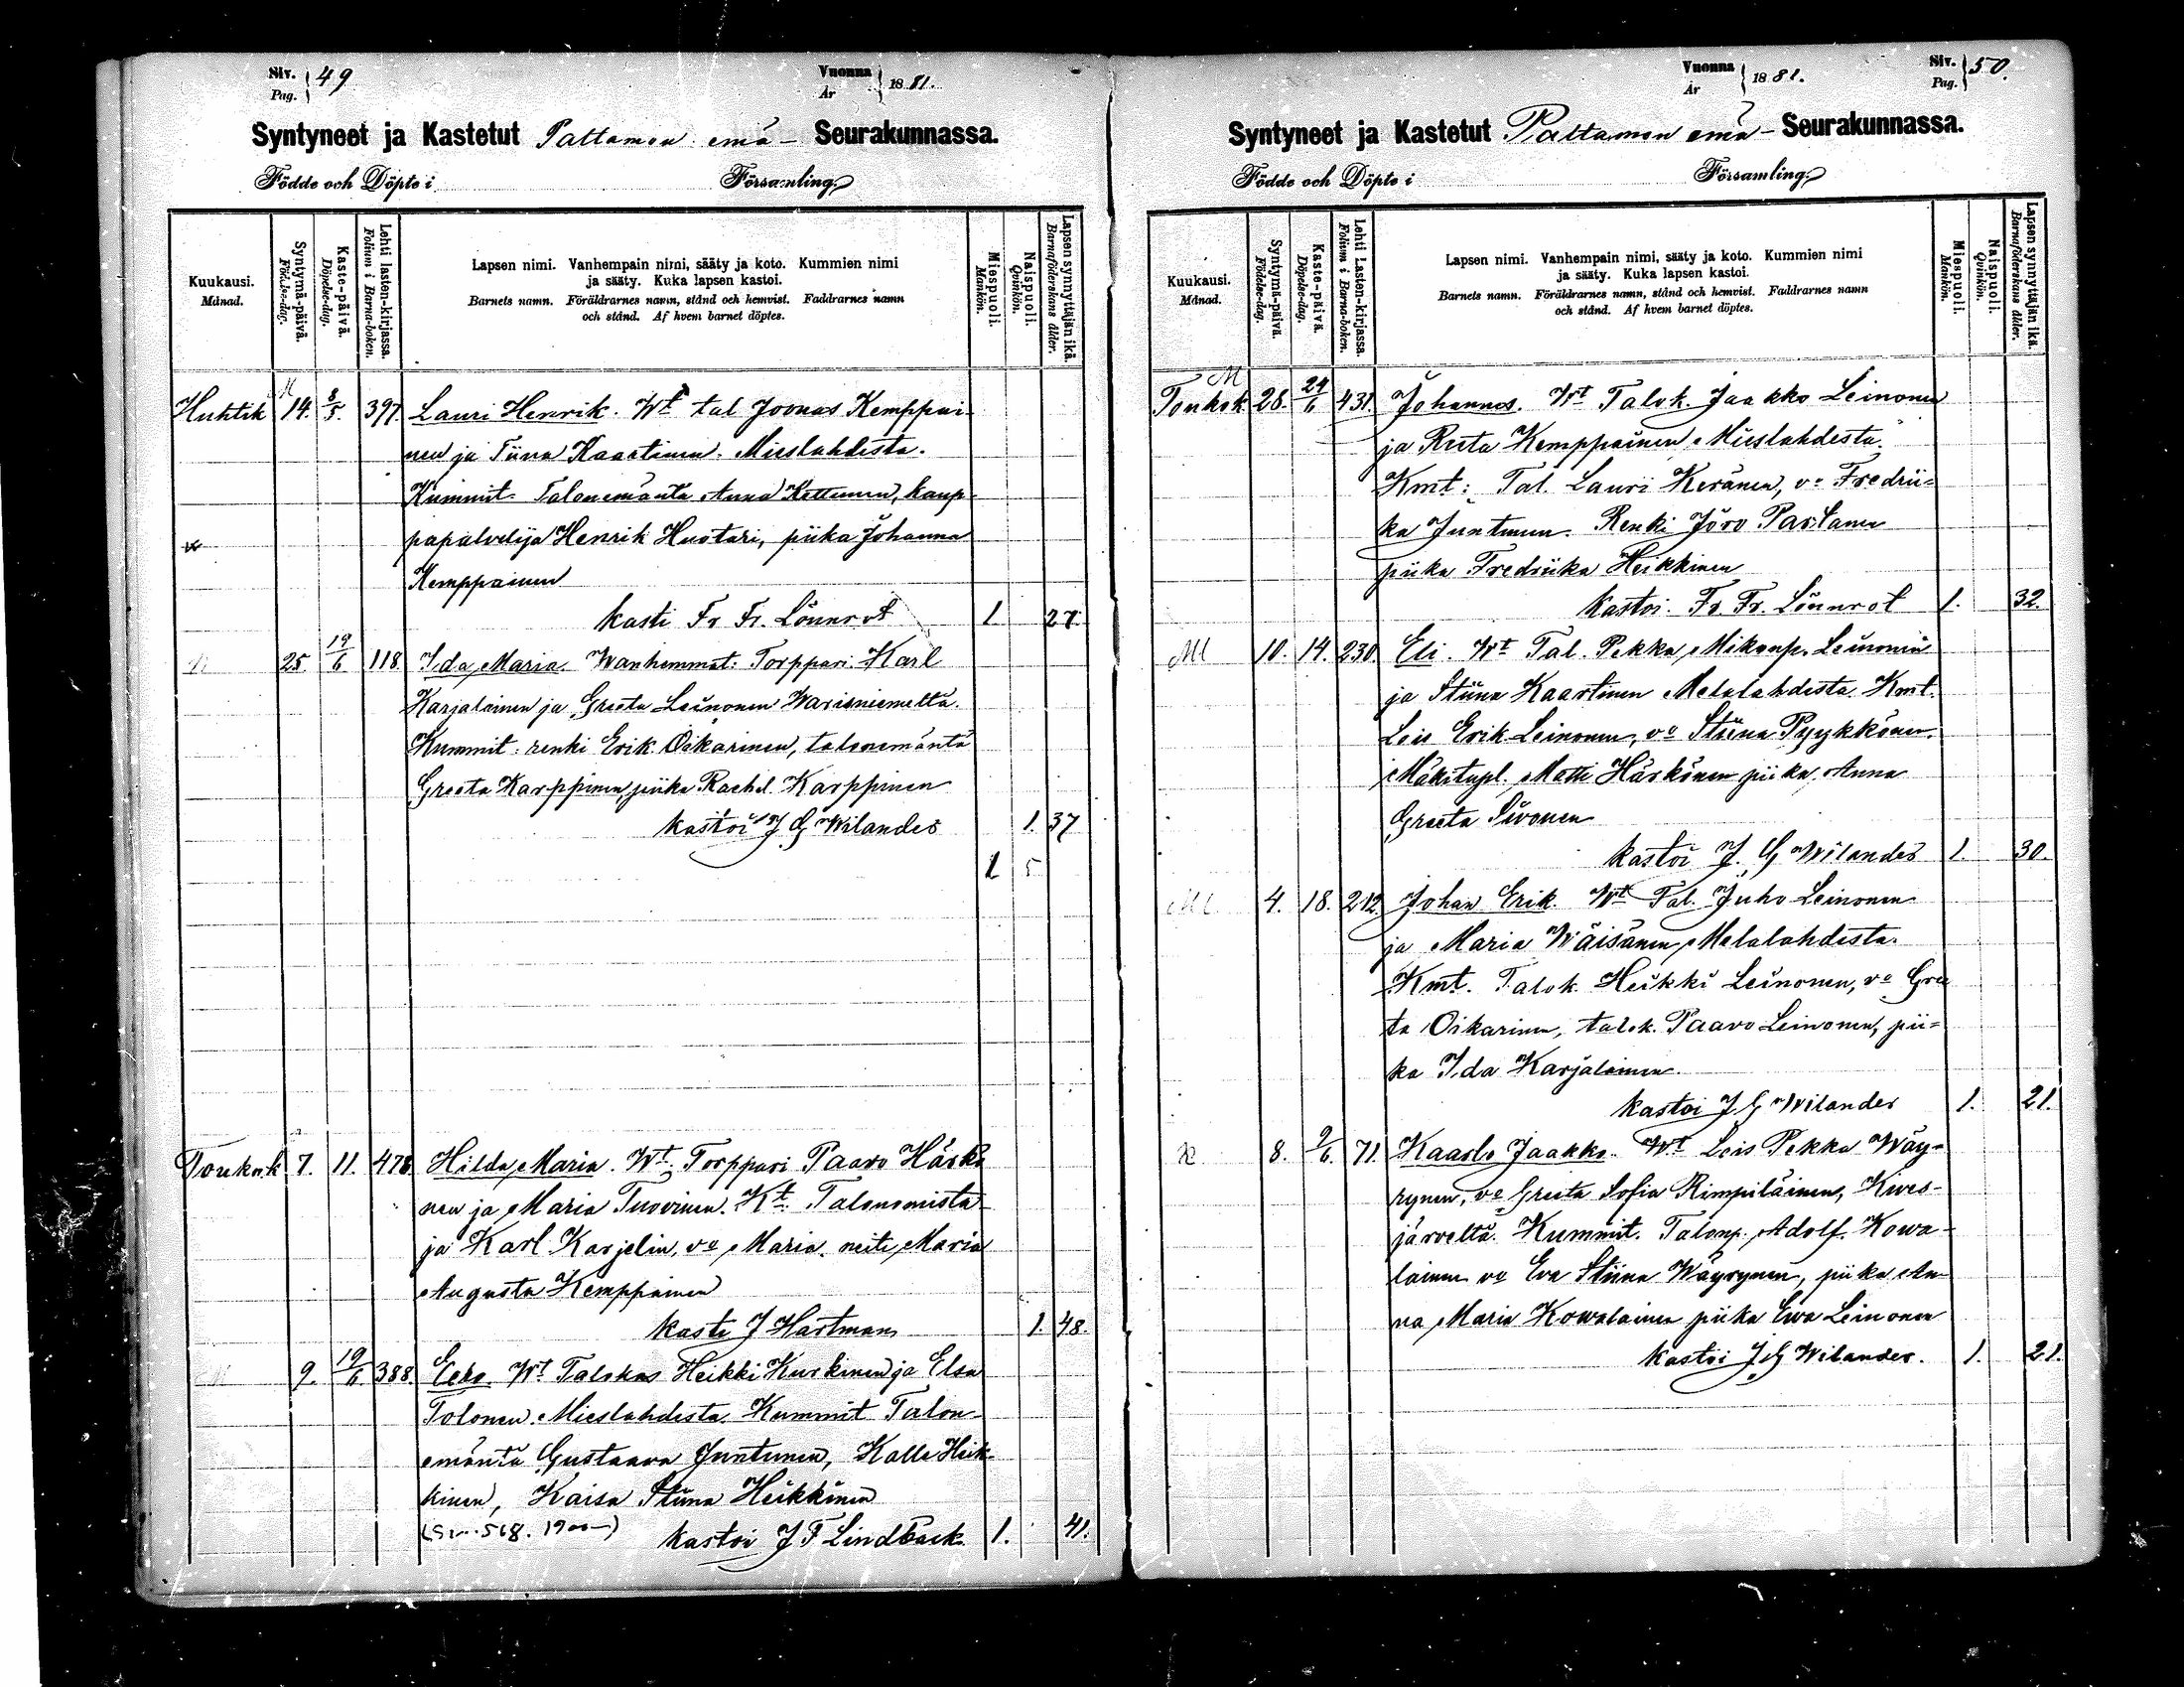 Siv. Pag. 49
Vuonna År 1881.
Syntyneet ja Kastetut Paltamon emä- Seurakunnassa.
Födde och Döpte i Församling.
Kuukausi. Månad.
Syntymä-päivä. Födelse-dag.
Kaste-päivä. Döpelse-dag.
Lehti lasten-kirjassa. Folium i Barna-boken.
Lapsen nimi. Vanhempain nimi, sääty ja koto. Kummien nimi
ja sääty. Kuka lapsen kastoi.
Barnets namn. Föräldrarnes namn, stånd och hemvist. Faddrarnes namn
och stånd. Af hvem barnet döptes.
Miespuoli. Mankön.
Naispuoli. Qvinkön.
Lapsen synnyttäjän ikä. Barnaföderskans ålder.
Huhtik M 14. 8/5. 397. Lauri Henrik. Wt tal Joonas Kemppai-
nen ja Tiina Kaartinen. Mieslahdesta.
Kummit. Talonemäntä Anna Kettunen, kaup-
papalvelija Henrik Huotari, piika Johanna
Kemppainen
kasti Fr Fr. Lönnrot 1 27.
25. 19/6 118 Ida Maria. Wanhemmat: Torppari Karl
Karjalainen ja Greeta Leinonen Warisniemeltä.
Kummit: renki Erik Oikarinen, talonemäntä
Greeta Karppinen, piika Rachel Karppinen
kastoi J G Wilander 1. 37
1 5
Toukok 7. 11. 478. Hilda Maria. Wt. Torppari Paavo Härkö
nen ja Maria Tuovinen. Kt. Talonomista-
ja Karl Karjelin, vo Maria. neiti Maria
Augusta Kemppainen
kaste J Hartman 1. 48.
M 9. 19/6. 388. Eero. Wt Talokas Heikki Kurkinen ja Elsa
Tolonen. Mieslahdesta. Kummit Talon-
emäntä Gustaava Juntunen, Kalle Heik-
kinen, Kaisa Stiina Heikkinen
kastoi J F Lindbäck 1. 41.
Vuonna År 1881.
Siv. Pag. 50.
Syntyneet ja Kastetut Paltamon emä- Seurakunnassa.
Födde och Döpte i Församling.
Kuukausi. Månad.
Syntymä-päivä. Födelse-dag.
Kaste-päivä. Döpelse-dag.
Lehti Lasten-kirjassa. Folium i Barna-boken.
Lapsen nimi. Vanhempain nimi, sääty ja koto. Kummien nimi
ja sääty. Kuka lapsen kastoi.
Barnets namn. Föräldrarnes namn, stånd och hemvist. Faddrarnes namn
och stånd. Af hvem barnet döptes.
Miespuoli. Mankön.
Naispuoli. Qvinkön.
Lapsen synnyttäjän ikä. Barnaföderskans ålder.
M
Toukok 28. 24/6 431. Johannes. Wt Talok. Jaakko Leinonen
ja Reeta Kemppainen Mieslahdesta.
Kmt: Tal. Lauri Keränen, vo Fredrii-
ka Juntunen. Renki Jöro Partanen
piika Fredriika Heikkinen
kastoi. Fr. Fr. Lönnrot 1. 32.
M 10. 14. 230. Eli. Wt Tal. Pekka Mikonp. Leinonen
ja Stiina Kaartinen Melalahdesta. Kmt.
Leis Erik Leinonen, vo Stiina Pyykkönen.
Mäkitupl. Matti Härkönen piika Anna
Greeta Sivonen
kastoi J. G Wilander 1. 30.
M 4. 18. 212. Johan Erik. Wt Tal. Juho Leinonen
ja Maria Wäisänen Melalahdesta.
Kmt. Talok. Heikki Leinonen, vo Gree
ta Oikarinen, talok. Paavo Leinonen, pii-
ka Ida Karjalainen.
kastoi J G Wilander 1. 21.
8. 9/6. 71. Kaarlo Jaakko. Wt Leis Pekka Wäy-
rynen, vo Greeta Sofia Rimpiläinen, Kives-
järveltä. Kummit. Talonp. Adolf. Kowa-
lainen vo Eva Stiina Wäyrynen, piika An-
na Maria Kowalainen piika Ewa Leinonen
kastoi J G Wilander. 1. 21.